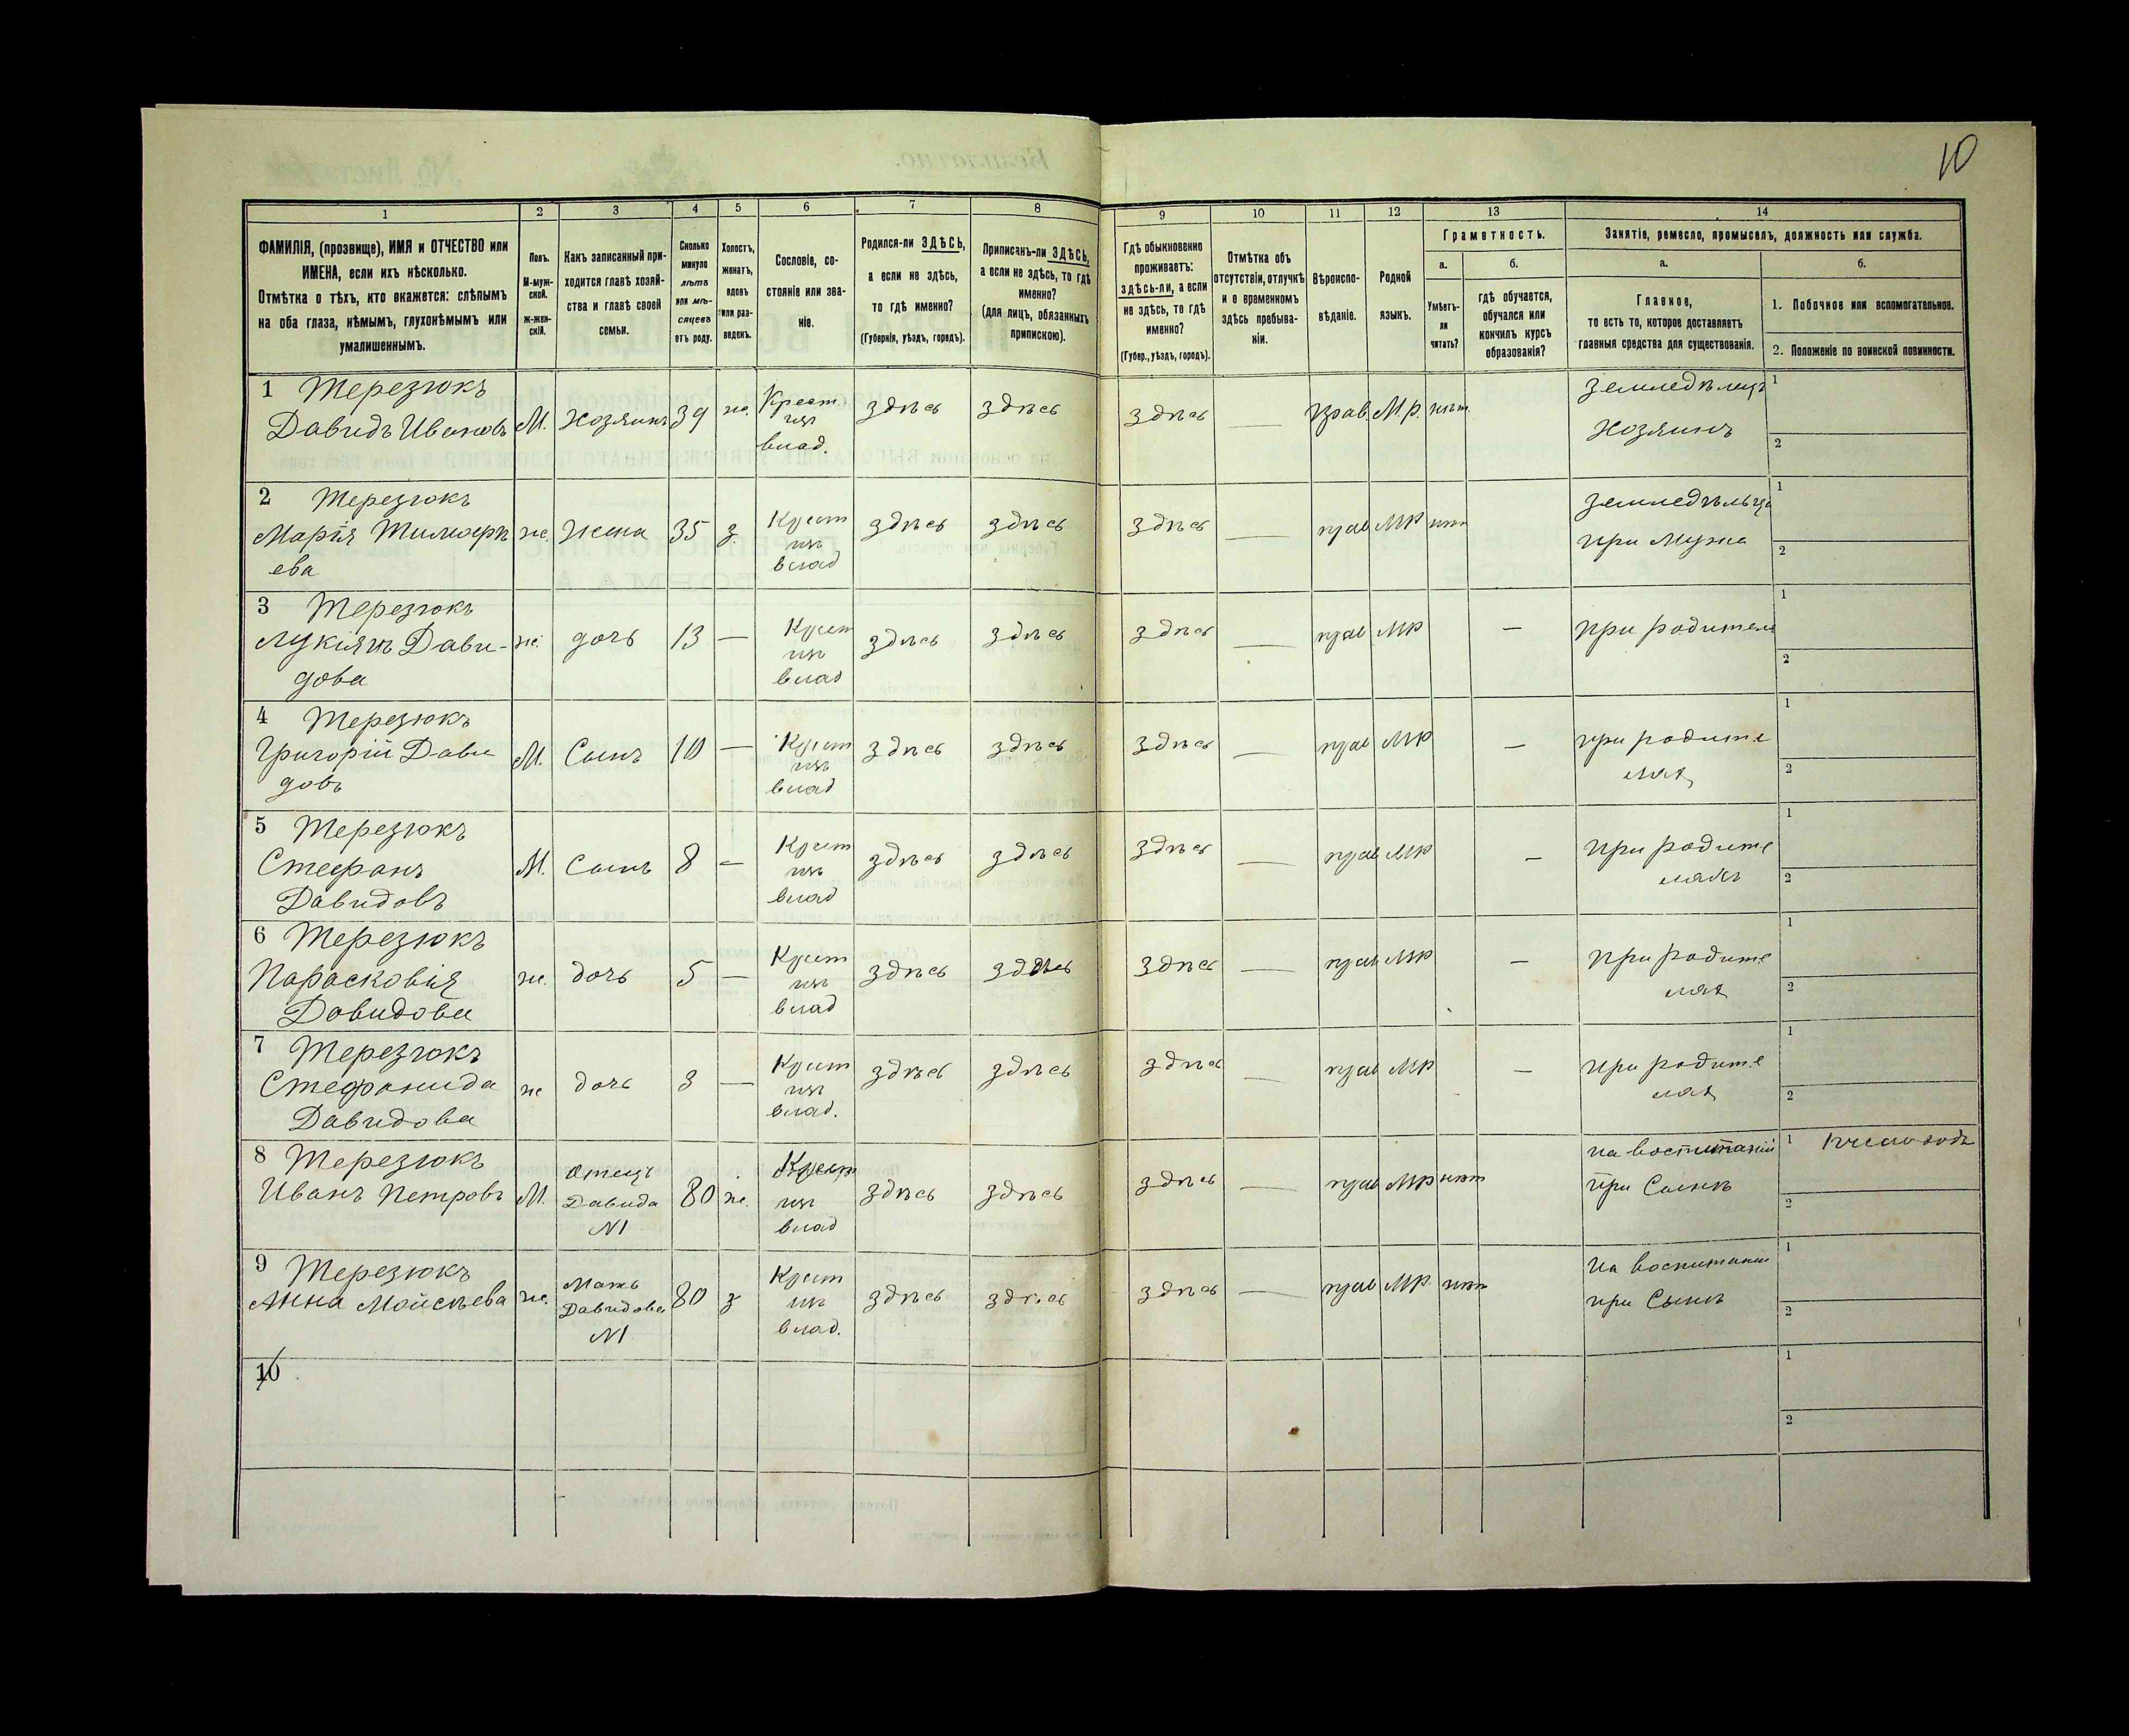 10
1 2 3 4 5 6 7 8 9 10 11 12 13 14
ФАМИЛІЯ, (прозвище), ИМЯ и ОТЧЕСТВО или
ИМЕНА, если ихъ нѣсколько.
Отмѣтка о тѣхъ, кто окажется: слѣпымъ
на оба глаза, нѣмымъ, глухонѣмымъ или
умалишеннымъ.
Полъ.
М-муж-
ской.
ж-жен-
скій.
Какъ записанный при-
ходится главѣ хозяй-
ства и главѣ своей
семьи.
Сколько
минуло
лѣтъ
или мѣ-
сяцевъ
отъ роду.
Холостъ,
женатъ,
вдовъ
или раз-
веденъ.
Сословіе, со-
стояніе или зва-
ніе.
Родился-ли ЗДѢСЬ,
а если не здѣсь,
то гдѣ именно?
(Губернія, уѣздъ, городъ).
Приписанъ-ли ЗДѢСЬ,
а если не здѣсь, то гдѣ
именно?
(для лицъ, обязанныхъ
припискою).
Гдѣ обыкновенно
проживаетъ:
здѣсь-ли, а если
не здѣсь, то гдѣ
именно?
(Губер., уѣздъ, городъ).
Отмѣтка объ
отсутствіи, отлучкѣ
и о временномъ
здѣсь пребыва-
ніи.
Вѣроиспо-
вѣданіе.
Родной
языкъ.
Грамотность.
а.
Умѣетъ-
ли
читать?
б.
гдѣ обучается,
обучался или
кончилъ курсъ
образованія?
Занятіе, ремесло, промыселъ, должность или служба.
а.
Главное,
то есть то, которое доставляетъ
главныя средства для существованія.
б.
1. Побочное или вспомогательное.
2. Положеніе по воинской повинности.
1 Терезюкъ
Давидъ Ивановъ М. Хозяинъ 39 ж. Крест
изъ
влад. здѣсь здѣсь здѣсь — прав. М.р. нѣт. земледѣлецъ
Хозяинъ 1
2
2 Терезюкъ
Марія Тимофѣ
ева ж. Жена 35 з. Крест
изъ
влад здѣсь здѣсь здѣсь — прав МР нѣт земледѣльца
при Мужа 1
2
3 Терезюкъ
Лукіянъ Дави-
дова ж. дочь 13 — Крест
изъ
влад здѣсь здѣсь здѣсь — прав МР — при родители 1
2
4 Терезюкъ
Григорій Дави
довъ М. Сынъ 10 — Крест
изъ
влад здѣсь здѣсь здѣсь — прав МР — при родите
лях 1
2
5 Терезюкъ
Стефанъ
Давидовъ М. Сынъ 8 — Крест
изъ
влад здѣсь здѣсь здѣсь — прав МР — при родите
ляхъ 1
2
6 Терезюкъ
Парасковія
Давидова ж. дочь 5 — Крест
изъ
влад здѣсь здѣсь здѣсь — прав МР — при родите
лях 1
2
7 Терезюкъ
Стефанида
Давидова ж дочь 3 — Крест
изъ
влад. здѣсь здѣсь здѣсь — прав МР — при родите
лях 1
2
8 Терезюкъ
Иванъ Петровъ М. Отецъ
Давида
N1 80 ж. Крест
изъ
влад здѣсь здѣсь здѣсь — прав МР нѣт на воспитаній
при Сынѣ 1 пчеловодъ
2
9 Терезюкъ
Анна Мойсѣева ж. Мать
Давидова
N1 80 з Крест
изъ
влад. здѣсь здѣсь здѣсь — прав МР. нѣт На воспитании
при Сынѣ 1
2
10 1
2